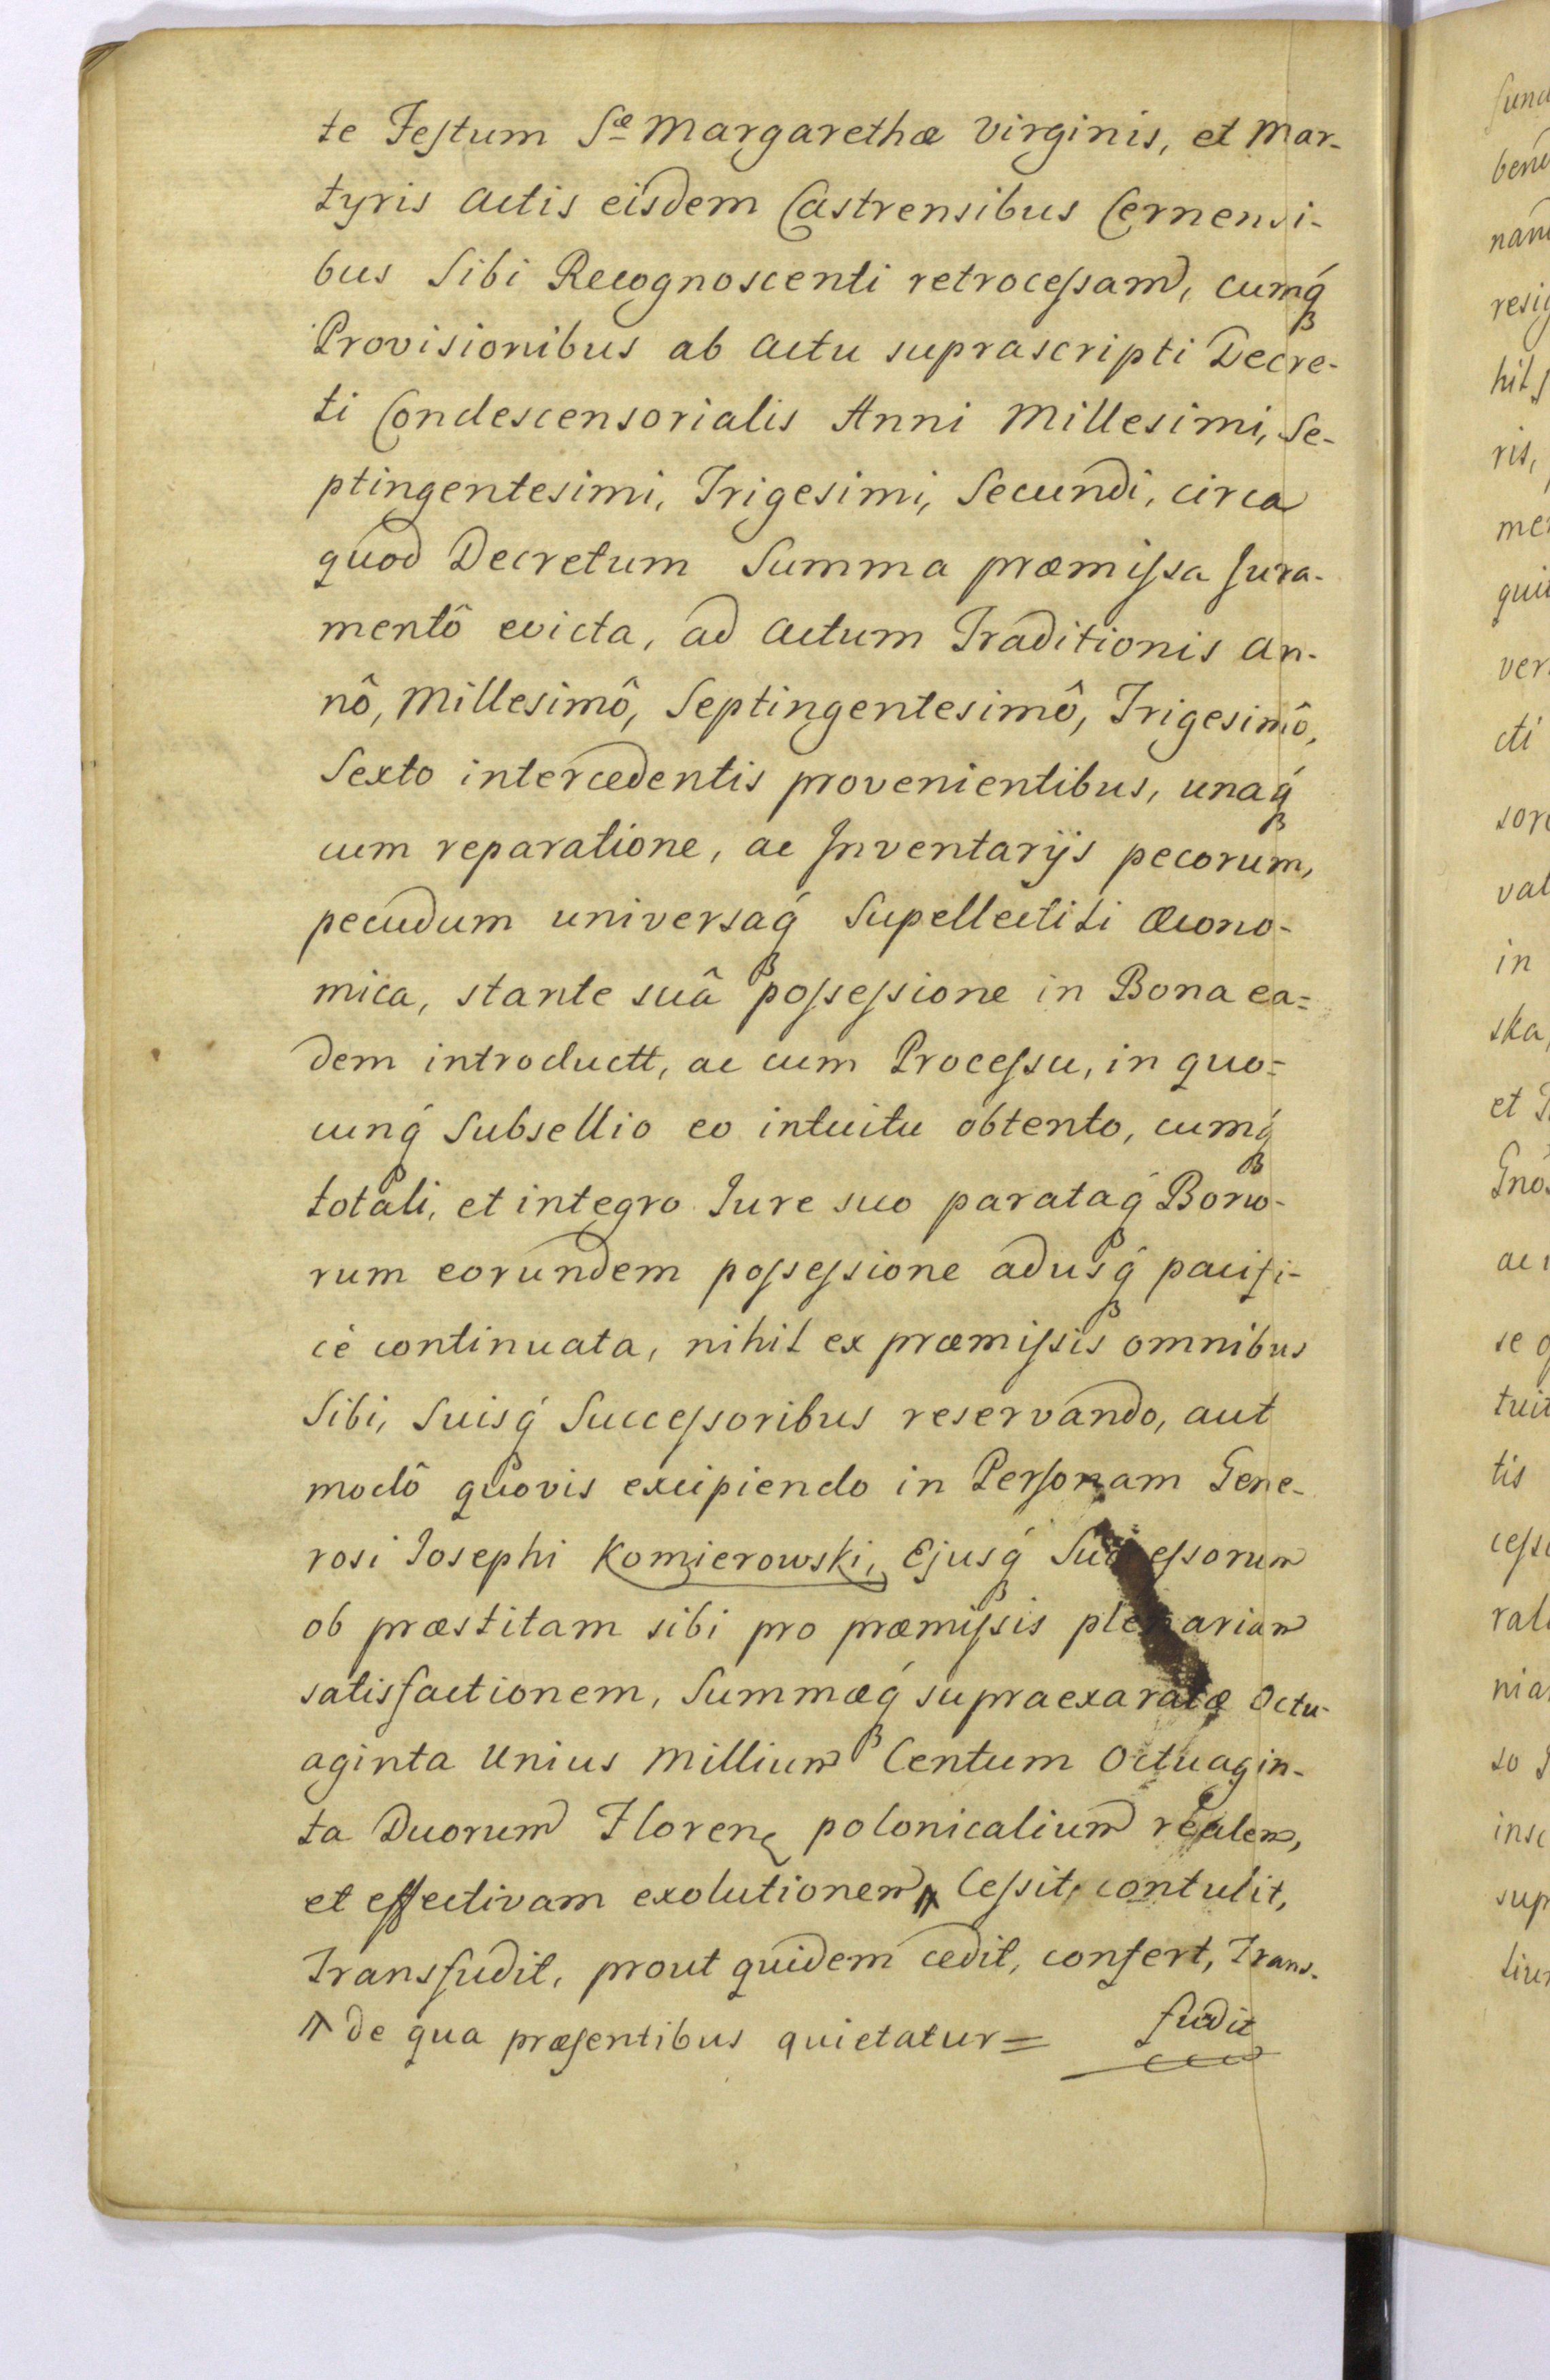 te Festum Sæ Margarethæ Virginis, et Mar-
tyris Actis eisdem Castrensibus Cernensi-
bus Sibi Recognoscenti retrocessam, cumq́
Provisionibus ab Actu suprascripti Decre-
ti Condescensorialis Anni Millesimi, Se-
ptingentesimi, Trigesimi, Secundi, circa
quod Decretum Summa præmissa Jura-
mentô evicta, ad Actum Traditionis An-
nô, Millesimô, Septingentesimô, Trigesimô,
Sexto intercedentis provenientibus, unaq́
cum reparatione, ac Inventarijs pecorum,
pecudum universaq́ Supellectili Œcono-
mica, stante suâ possessione in Bona ea=
dem introductt, ac cum Processu, in quo=
cunq́ Subsellio eo intuitu obtento, cumq́
totali, et integro Jure suo parataq́ Bono-
rum eorundem possessione adusq́ pacifi-
cè continuata, nihil ex præmissis omnibus
Sibi, Suisq́ Successoribus reservando, aut
modô quovis excipiendo in Personam Gene-
rosi Josephi Komierowski, Ejusq́ Successorum
ob præstitam sibi pro præmissis plenariam
satisfactionem, Summæq́ supraexaratæ Octu-
aginta Unius Millium Centum Octuagin-
ta Duorum Floren polonicalium realem,
et effectivam exolutionem, Cessit, contulit,
Transfudit, prout quidem cedit, confert, Trans-
de qua præsentibus quietatur= fudit
sund
ben
nam
resig
hil
ris,
me
qui
ver
cti
sor
val
in
ska,
et
Gnô
ac
se
tuit
tis
cess
rali
nia
so
insc
sup
tiu